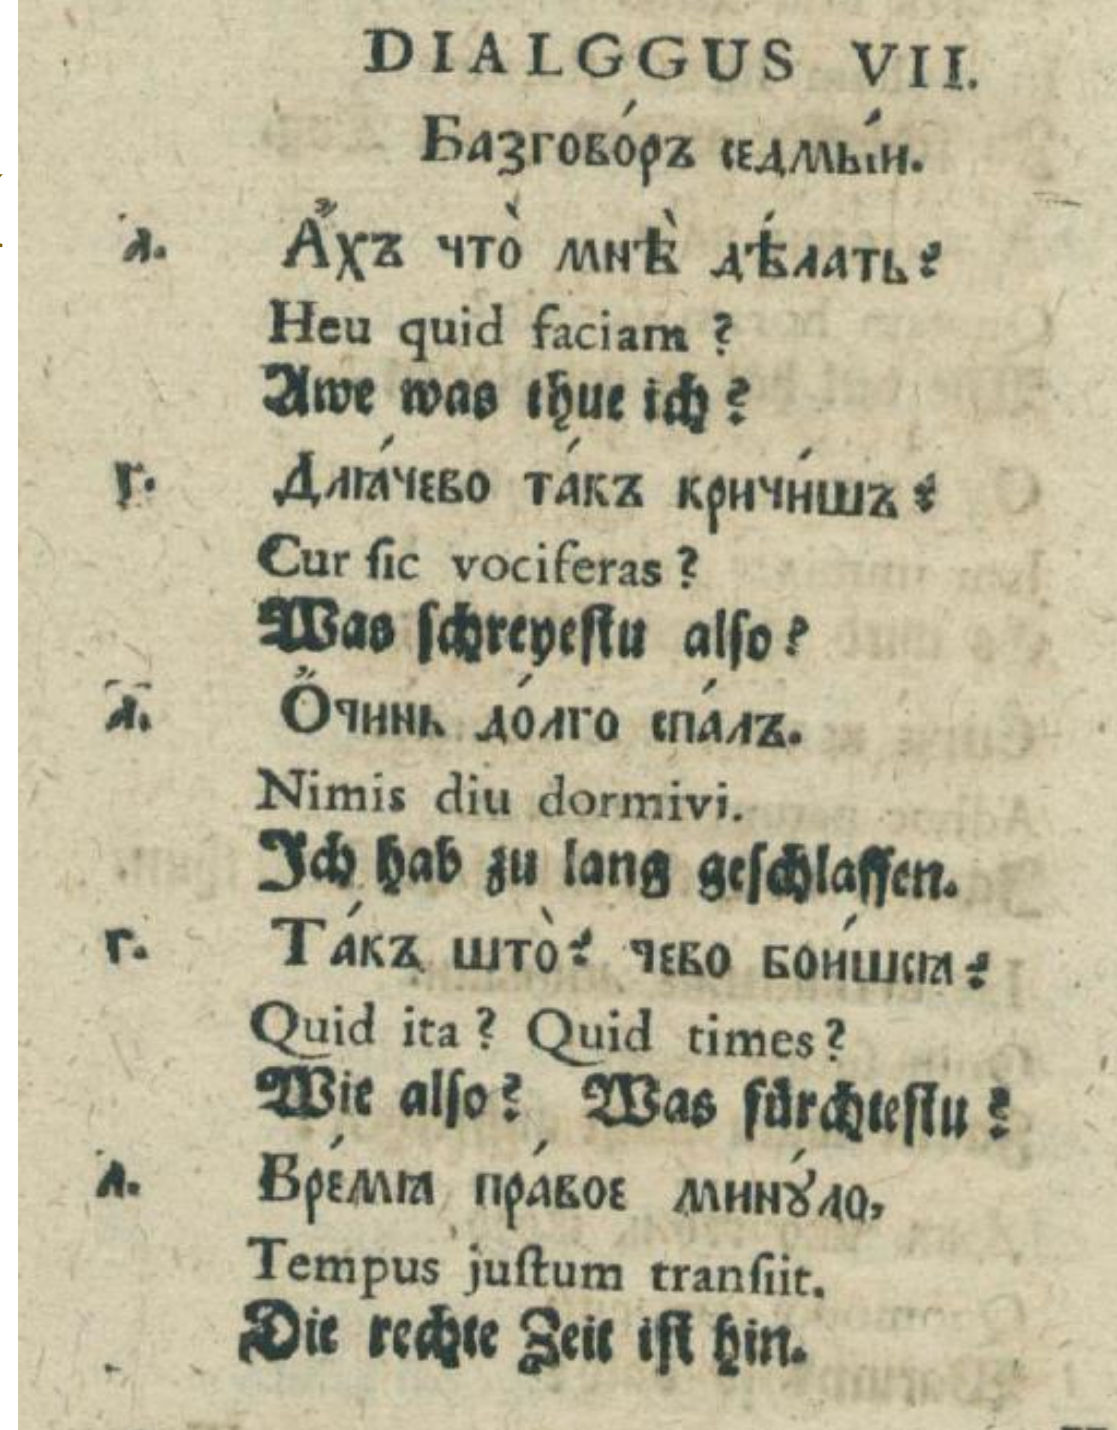 DIALGGUS VII.
Базгово́ръ седмы́и.
л. А҆́хъ что̀ мнѣ̀ дѣ́лать?
Heu quid faciam ?
Awe was thue ich?
г. Длꙗ́чево та́къ кричи́шъ?
Cur ſic vociferas ?
Was ſchreyeſtu alſo?
л. О҆́чинь до́лго спа́лъ.
Nimis diu dormivi.
Ich hab zu lang geſchlaffen.
г. Та́къ што̀? чево бои́шсꙗ?
Quid ita ? Quid times ?
Wie alſo? Was fürchteſtu?
л. Вре́мꙗ пра́вое минꙋ́ло,
Tempus juſtum tranſiit.
Die rechte Zeit iſt hin.